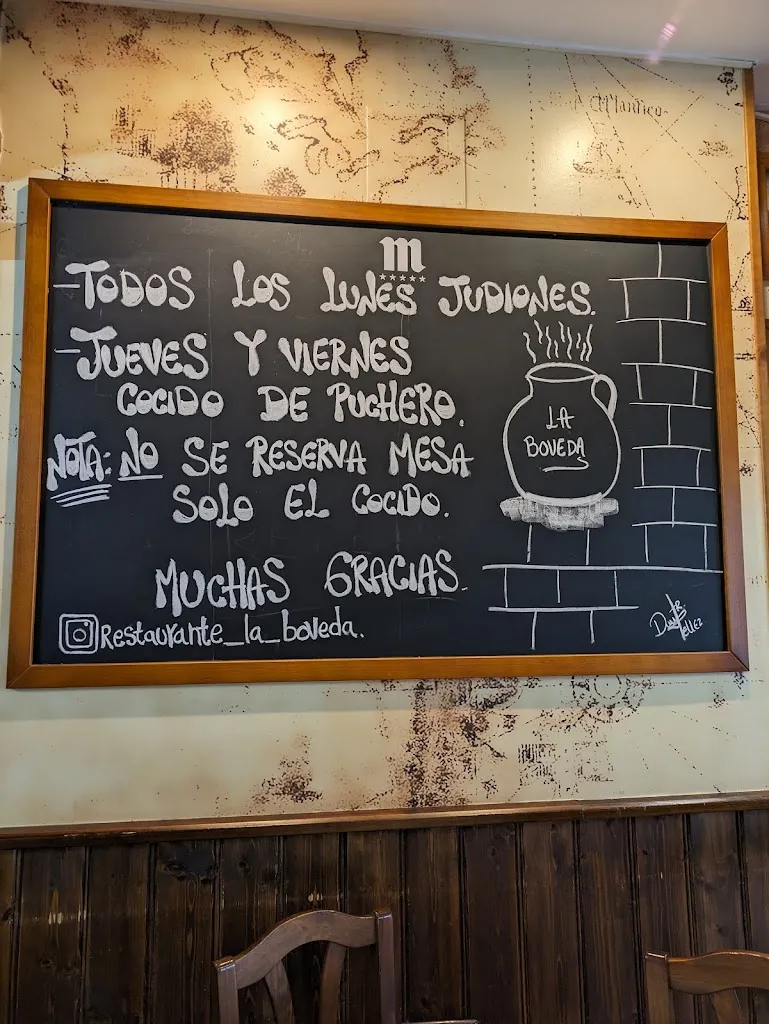 Atlántico
m
-TODOS LOS LUNES JUDIONES.
-JUEVES Y VIERNES
COCIDO DE PUCHERO.
NOTA: NO SE RESERVA MESA
SOLO EL COCIDO.
MUCHAS GRACIAS.
Restaurante_la_boveda.
LA
BOVEDA